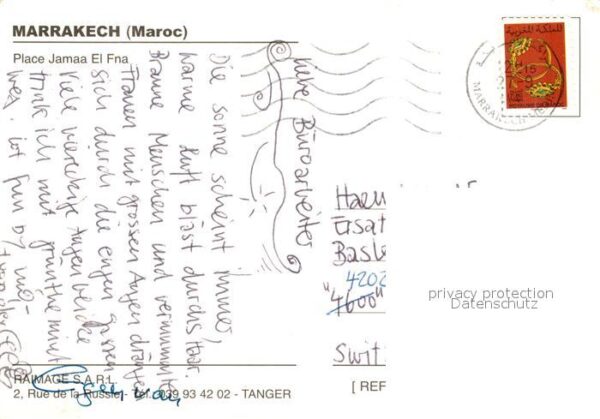 MARRAKECH (Maroc)
Place Jamaa El Fna
liebe Büroarbeiter
Die sonne scheint immer,
warme luft bläst durchs Haar.
Braune Menschen und vermummte
Frauen mit grossen Augen drängen
sich durch die engen Gassen
Viele viereckige Augen
trink ich mit
weg. ist fun
المملكة المغربية
ROYAUME DU MAROC
MARRAKECH
Ersat
Basle
4202
"4600"
Swit
privacy protection
Datenschutz
RAIMAGE S.A.R.L.
2, Rue de la Russie - Tél. 039 93 42 02 - TANGER
[ REF